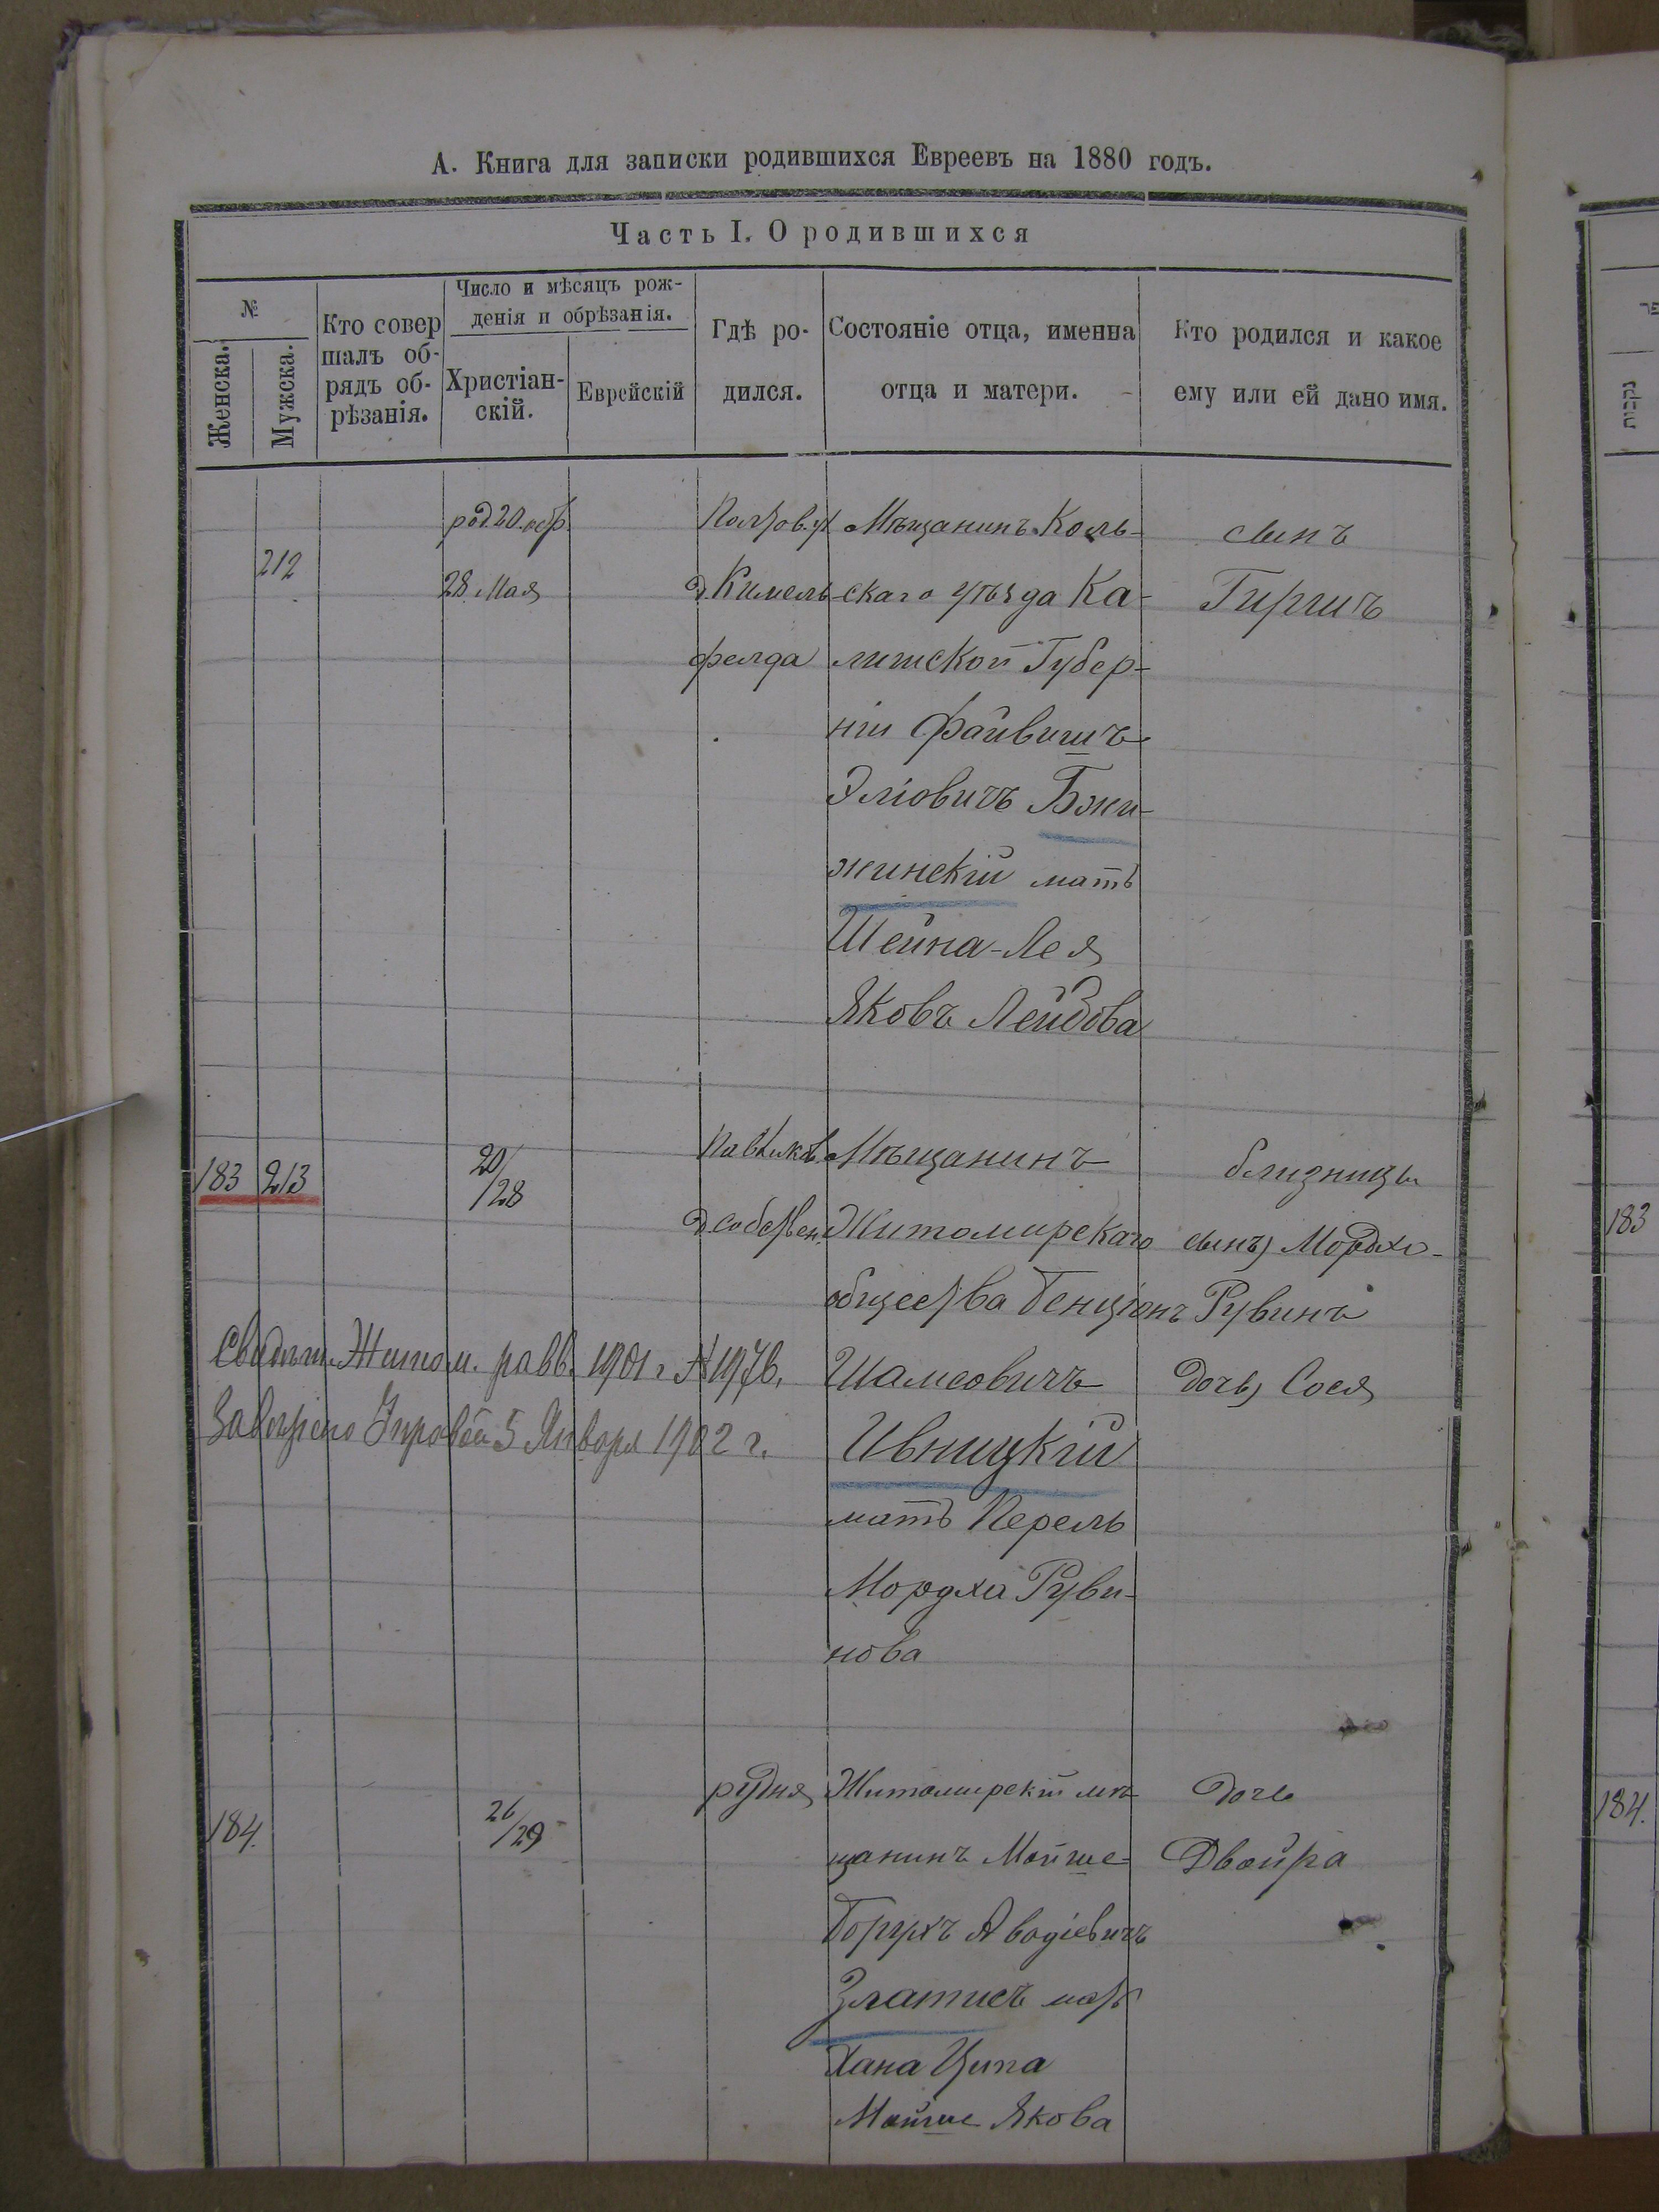 А. Книга для записки родившихся Евреевъ на 1880 годъ.
Часть I. О родившихся
№
Женска.
Мужска.
Кто совер
шалъ об-
рядъ об-
рѣзанія.
Число и мѣсяцъ рож-
денія и обрѣзанія.
Христіан-
скій.
Еврейскій
Гдѣ ро-
дился.
Состояніе отца, именна
отца и матери.
Кто родился и какое
ему или ей дано имя.
212
род. 20. обр.
28 Мая
д. Кимель
фелда
Мѣщанинъ Коль-
скаго уѣзда Ка-
лишской Губер-
ніи Файвишъ
Эліовичъ Бжи-
жинскій мать
Шейна-Лея
Яковъ Лейбова
сынъ
Гиршъ
183 213
20/28
д. собствен.
Мѣщанинъ
Житомирскаго
общества Бенціонъ
Шамсовичъ
Ивницкій
мать Перель
Мордха Руви-
нова
близницы
сынъ) Мордхо-
Рувинъ
дочь) Сося
Свидѣт. Житом. равв. 1901 г. №1976.
5 Января 1902 г.
184.
26/29
рудня
Житомирскій мѣ-
щанинъ Мойше-
Борухъ Авадіевичъ
Златисъ мать
Хана Ципа
Мойше Якова
дочь
Двойра
נקבות
183
184.